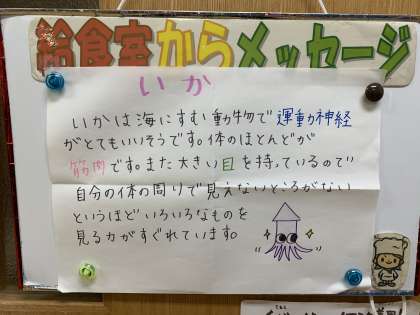 給食室からメッセージ
いか
いかは海にすむ動物で運動神経
がとてもいいそうです。体のほとんどが
筋肉です。また大きい目を持っているので
自分の体の周りで見えないところがない
というほどいろいろなものを
見る力がすぐれています。